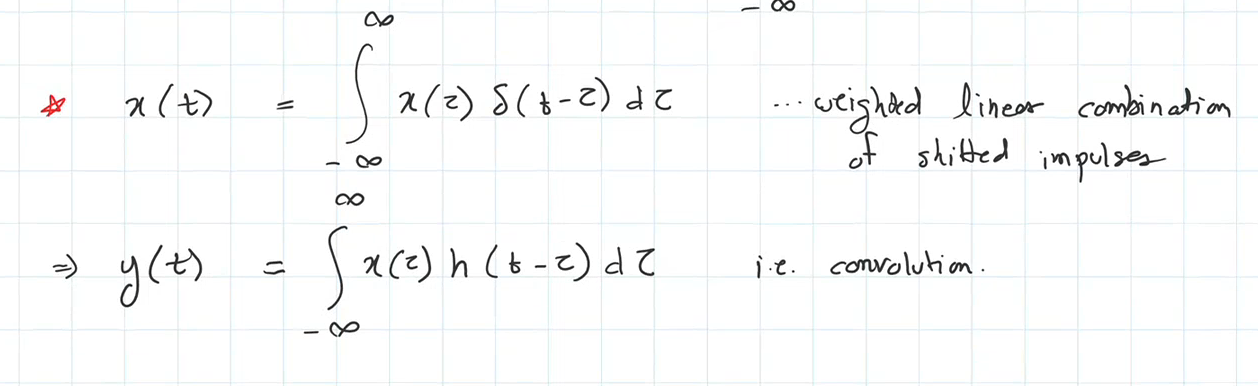 − ∞
☆ x(t) = ∫_{-∞}^{∞} x(τ) δ(t-τ) dτ ... weighted linear combination
of shifted impulses
⇒ y(t) = ∫_{-∞}^{∞} x(τ) h(t-τ) dτ i.e. convolution.